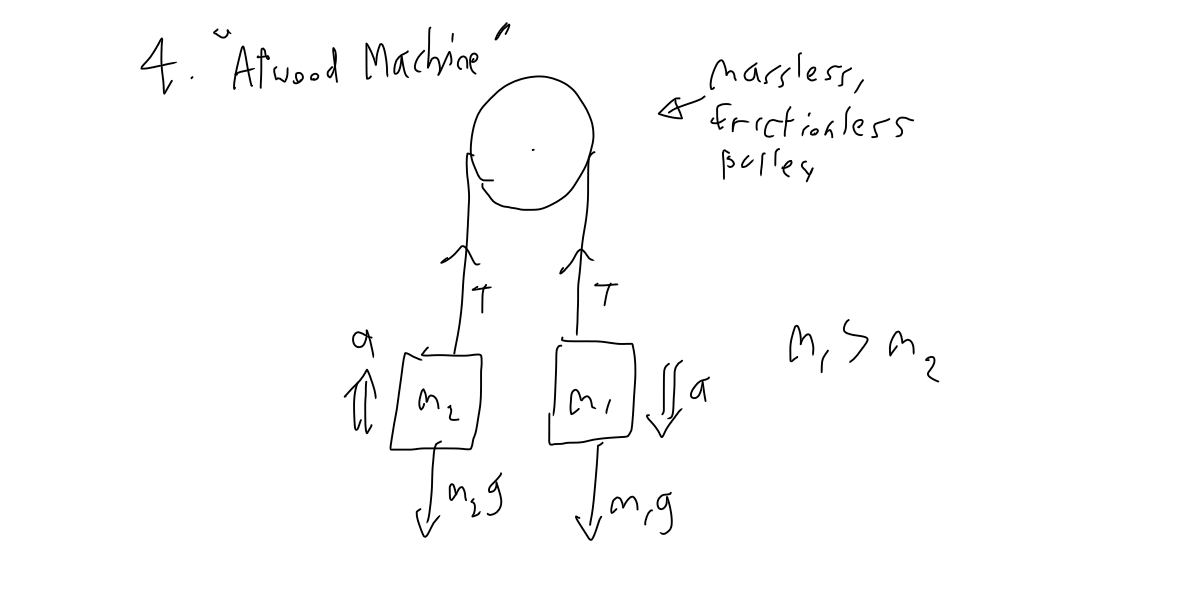 4. "Atwood Machine"
massless,
frictionless
pulley
T
T
a
m₂
m₁
a
m₁ > m₂
m₂g
m₁g